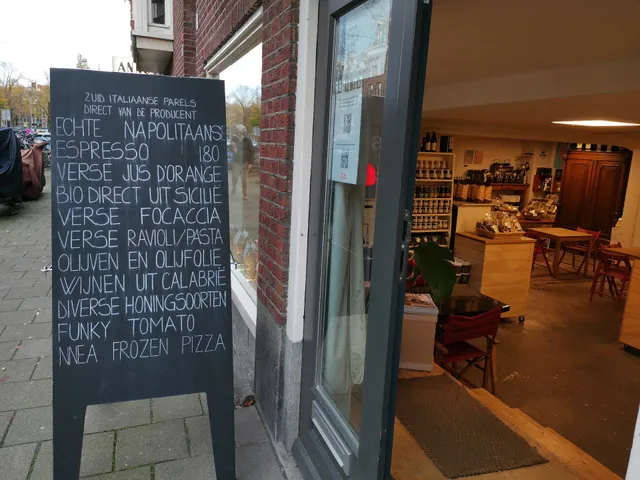 ZUID ITALIAANSE PARELS
DIRECT VAN DE PRODUCENT
ECHTE NAPOLITAANSE
ESPRESSO 1.80
VERSE JUS D'ORANGE
BIO DIRECT UIT SICILIË
VERSE FOCACCIA
VERSE RAVIOLI/PASTA
OLIJVEN EN OLIJFOLIE
WIJNEN UIT CALABRIË
DIVERSE HONINGSOORTEN
FUNKY TOMATO
NNEA FROZEN PIZZA